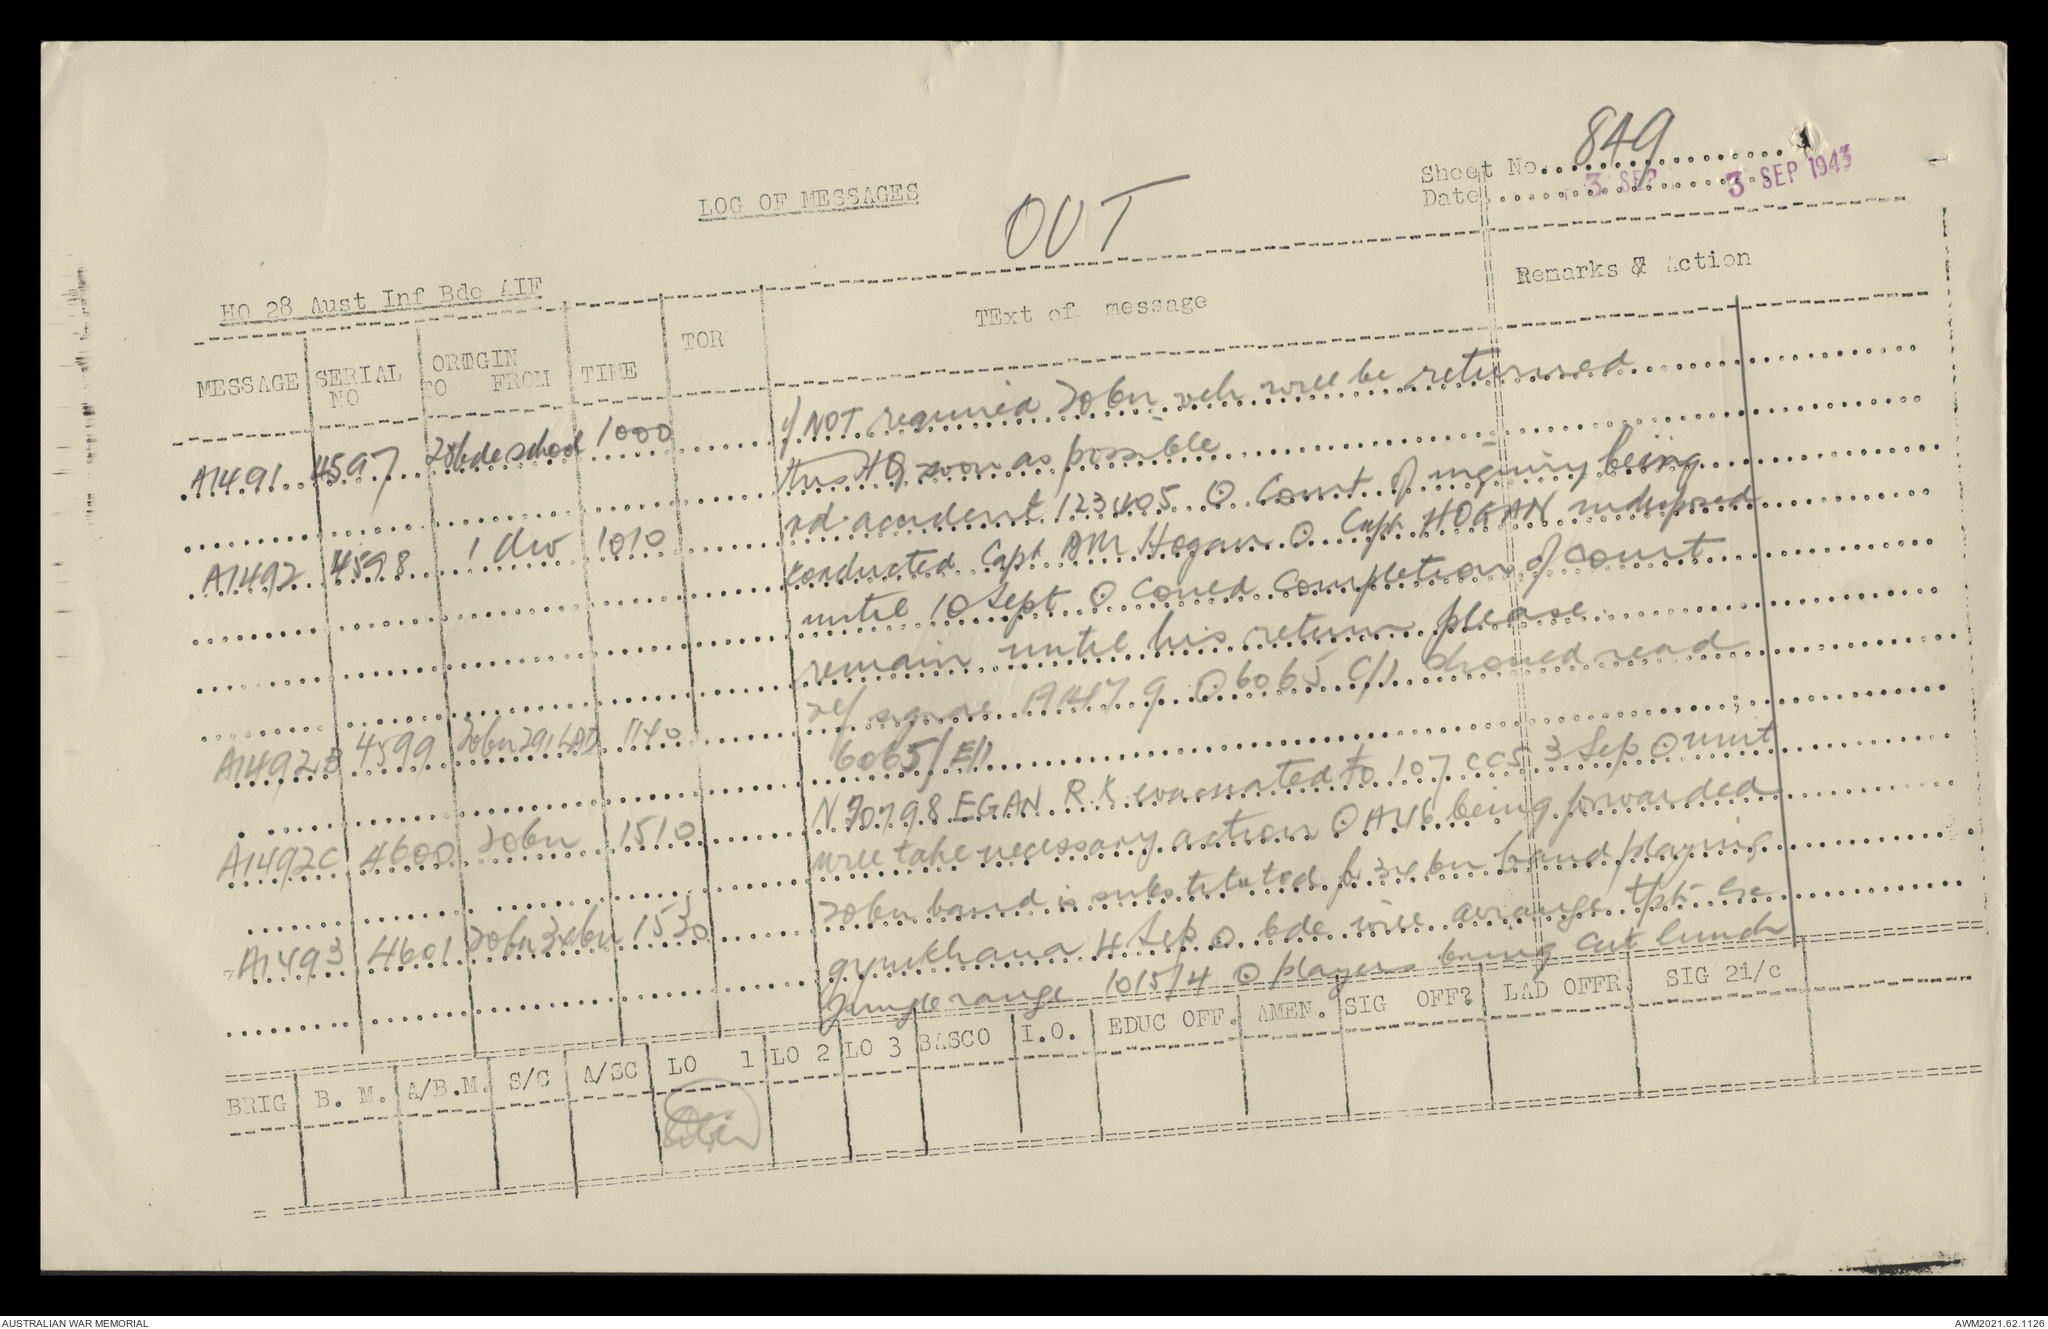 Sheet No. 849
Date 3 SEP 3 SEP 1943
LOG OF MESSAGES OUT
HQ 28 Aust Inf Bde AIF
MESSAGE SERIAL NO ORIGIN TO FROM TIME TOR TExt of message Remarks & Action
A1491 4597 28bde school 1000 if NOT required 20bn veh will be returned
this HQ soon as possible
A1492 4598 1 div 1010 rd accident 123405 ⊙ Court of inquiry being
conducted Capt AM Hogan ⊙ Capt HOGAN indisposed
until 10 Sept ⊙ Could completion of court
remain until his return please
A1492B 4599 20bn 291 LAD 1140 ref A1479 ⊙ 6065 C/1 should read
6065/E/1
A1492C 4600 20bn 1510 EGAN R.K evacuated to 107 CCS 3 Sep ⊙ unit
will take necessary action ⊙ A46 being forwarded
A1493 4601 20bn 1530 20bn band is substituted for band playing
gymkhana 4 Sep ⊙ bde will arrange tpt
Jungle range 1015/4 ⊙ players bring cut lunch
BRIG B. M. A/B.M. S/C A/SC LO 1 LO 2 LO 3 BASCO I.O. EDUC OFF. AMEN. SIG OFF? LAD OFFR SIG 2i/c
AUSTRALIAN WAR MEMORIAL
AWM2021.62.1126